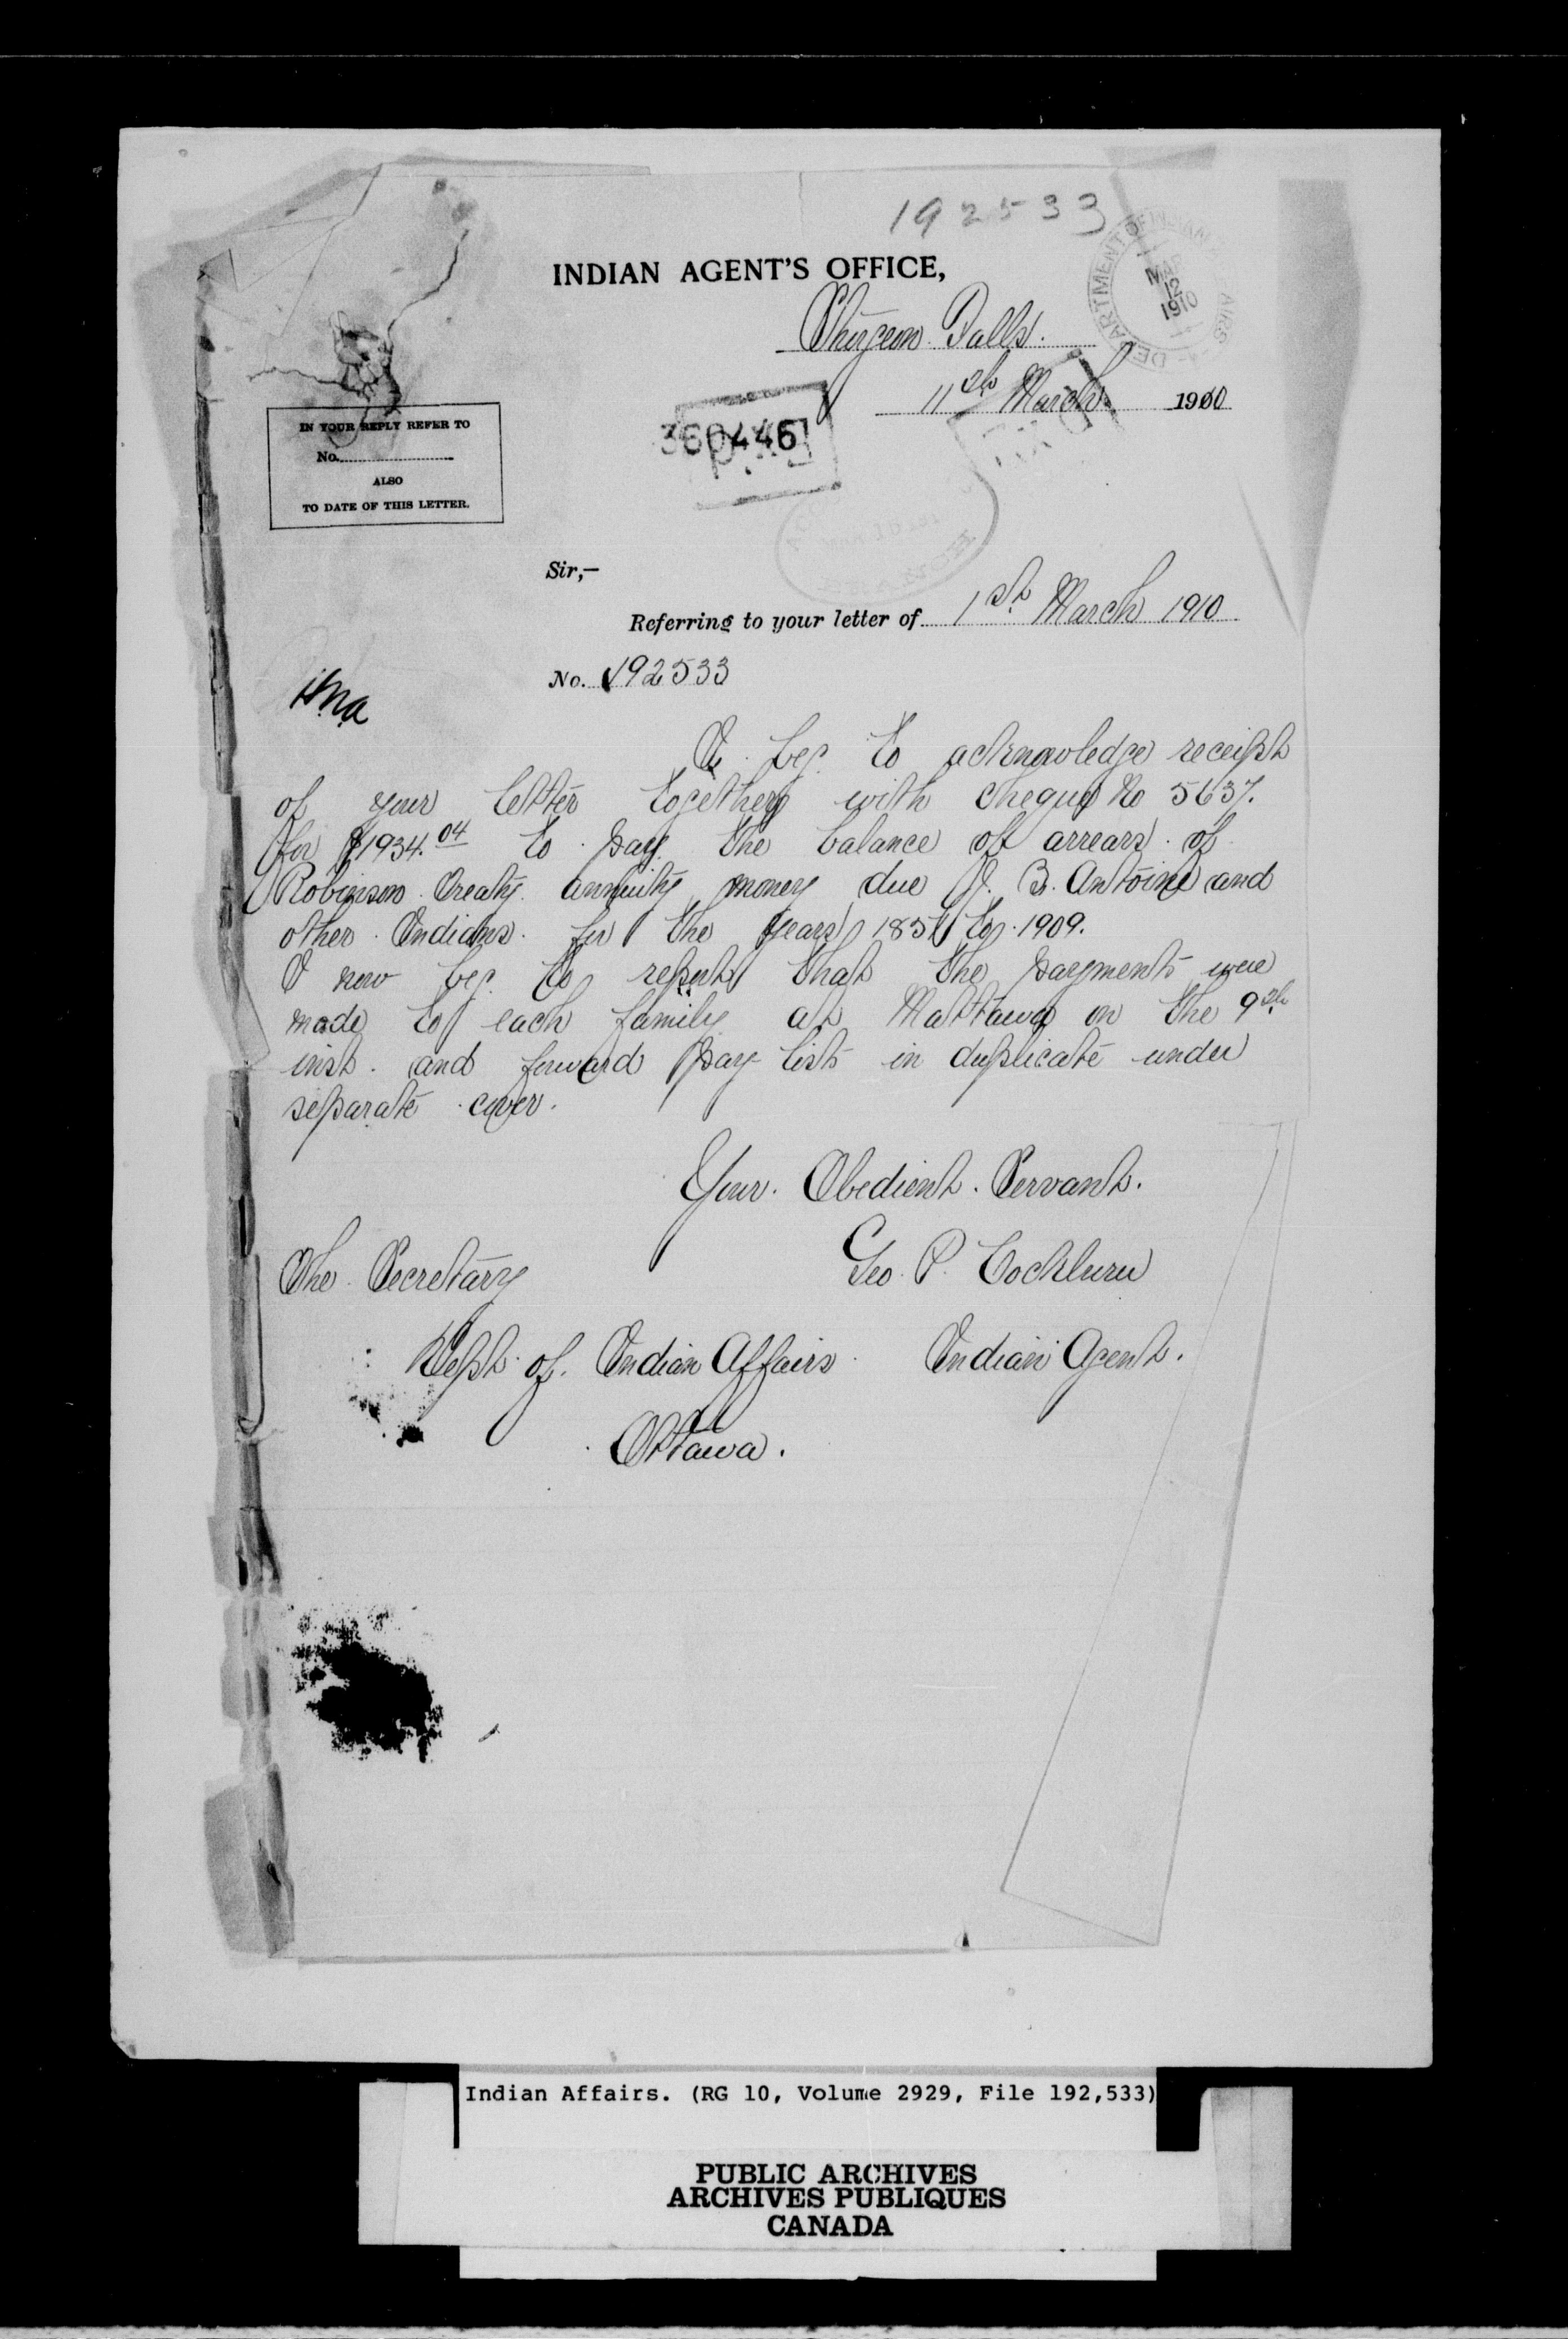 192533
INDIAN AGENT'S OFFICE,
Sturgeon Falls.
11th March 1910
DEPARTMENT OF INDIAN AFFAIRS
MAR
12
1910
360446
IN YOUR REPLY REFER TO
No.
ALSO
TO DATE OF THIS LETTER.
Sir,—
Referring to your letter of 1st March 1910
No. 192533
H.Ma
I beg to acknowledge receipt
of your letter together with cheque No 5637.
for $1934.04 to pay the balance of arrears of
Robinson Treaty annuity money due J. B. Antoine and
other Indians for the years 1851 to 1909.
I now beg to report that the payments were
made to each family at Mattawa on the 9th
inst. and forward pay lists in duplicate under
separate cover.
Your Obedient Servant.
Geo. P. Cockburn
The Secretary
Dept. of Indian Affairs Indian Agent.
Ottawa.
Indian Affairs. (RG 10, Volume 2929, File 192,533)
PUBLIC ARCHIVES
ARCHIVES PUBLIQUES
CANADA